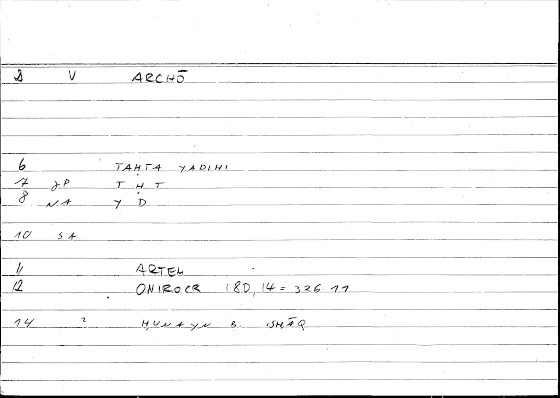 2 V ARCHŌ
6 TAHTA YADIHI
7 JP T Ḥ T
8 NA Y D
10 SA
11 ARTEM
12 ONIROCR 180, 14 = 326.11
14 ? ḤUNAYN B. ISḤĀQ